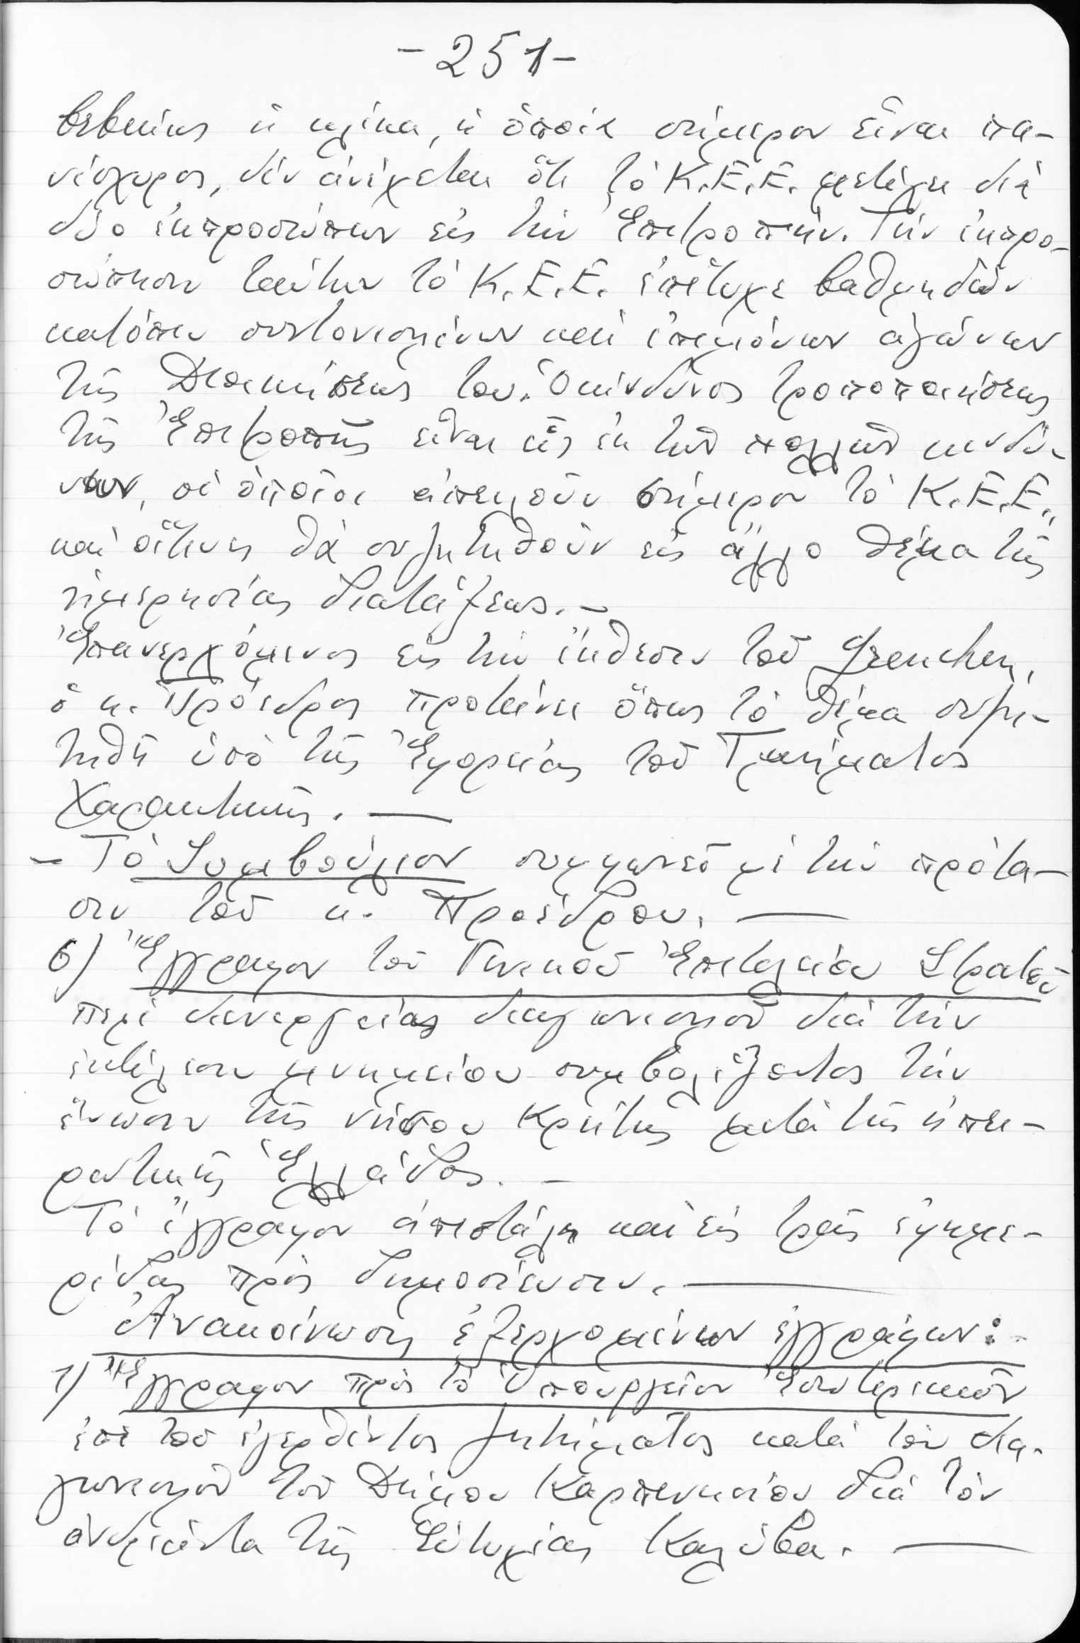 -251-
βεβαίως ἡ κλίκα, ἡ ὁποία σήμερον εἶναι πα-
νίσχυρος, δέν ἀνέχεται ὅτι τό Κ.Ε.Ε. μετέχει διά
δύο ἐκπροσώπων εἰς τήν Ἐπιτροπήν. Τήν ἐκπρο-
σώπησιν ταύτην τό Κ.Ε.Ε. ἐπέτυχε βαθμηδόν
κατόπιν συντονισμένων καί ἐπιμόνων ἀγώνων
τῆς Διοικήσεως του. Ὁ κίνδυνος τροποποιήσεως
τῆς Ἐπιτροπῆς εἶναι εἷς ἐκ τῶν πολλῶν κινδύ-
νων, οἱ ὁποῖοι ἀπειλοῦν σήμερον τό Κ.Ε.Ε.,
καί οἵτινες θά συζητηθοῦν εἰς ἄλλο θέμα τῆς
ἡμερησίας διατάξεως.-
Ἐπανερχόμενος εἰς τήν ἔκθεσιν τοῦ Grenchen,
ὁ κ. Πρόεδρος προτείνει ὅπως τό θέμα συζη-
τηθῆ ὑπό τῆς Ἐφορείας τοῦ Τμήματος
Χαρακτικῆς. —
- Τό Συμβούλιον συμφωνεῖ μέ τήν πρότα-
σιν τοῦ κ. Προέδρου. —
6) Ἔγγραφον τοῦ Γενικοῦ Ἐπιτελείου Στρατοῦ
περί διενεργείας διαγωνισμοῦ διά τήν
ἐκτέλεσιν μνημείου συμβολίζοντος τήν
ἕνωσιν τῆς νήσου Κρήτης μετά τῆς ἠπει-
ρωτικῆς Ἑλλάδος. -
Τό ἔγγραφον ἀπεστάλη καί εἰς τρεῖς ἐφημε-
ρίδας πρός δημοσίευσιν. —
Ἀνακοίνωσις ἐξερχομένων ἐγγράφων:-
1) Ἔγγραφον πρός τό Ὑπουργεῖον Ἐσωτερικῶν
ἐπί τοῦ ἐγερθέντος ζητήματος κατά τόν δια-
γωνισμόν τοῦ Δήμου Καρπενησίου διά τόν
ἀνδριάντα τῆς Εὐτυχίας Καλύβα. —